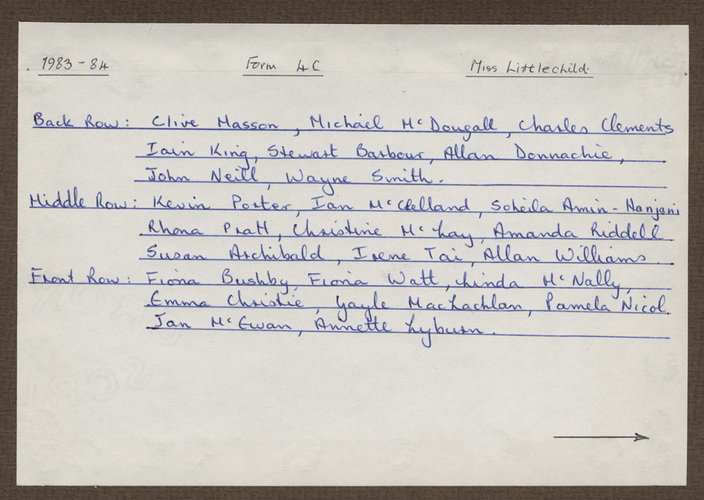 1983-84 Form 4C Miss Littlechild.
Back Row: Clive Masson, Michael McDougall, Charles Clements
Iain King, Stewart Barbour, Allan Donnachie,
John Neill, Wayne Smith.
Middle Row: Kevin Porter, Ian McClelland, Soheila Amin-Hanjani
Rhona Pratt, Christine McLay, Amanda Riddell
Susan Archibald, Irene Tai, Allan Williams.
Front Row: Fiona Bushby, Fiona Watt, Linda McNally,
Emma Christie, Gayle MacLachlan, Pamela Nicol
Jan McEwan, Annette Lyburn.